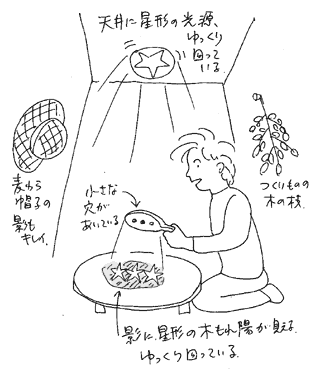 天井に星形の光源、
ゆっくり
回って
いる
麦わら
帽子の
影も
キレイ。
小さな
穴が
あいている
つくりものの
木の枝。
影に、星形の木もれ陽が見える。
ゆっくり回っている。